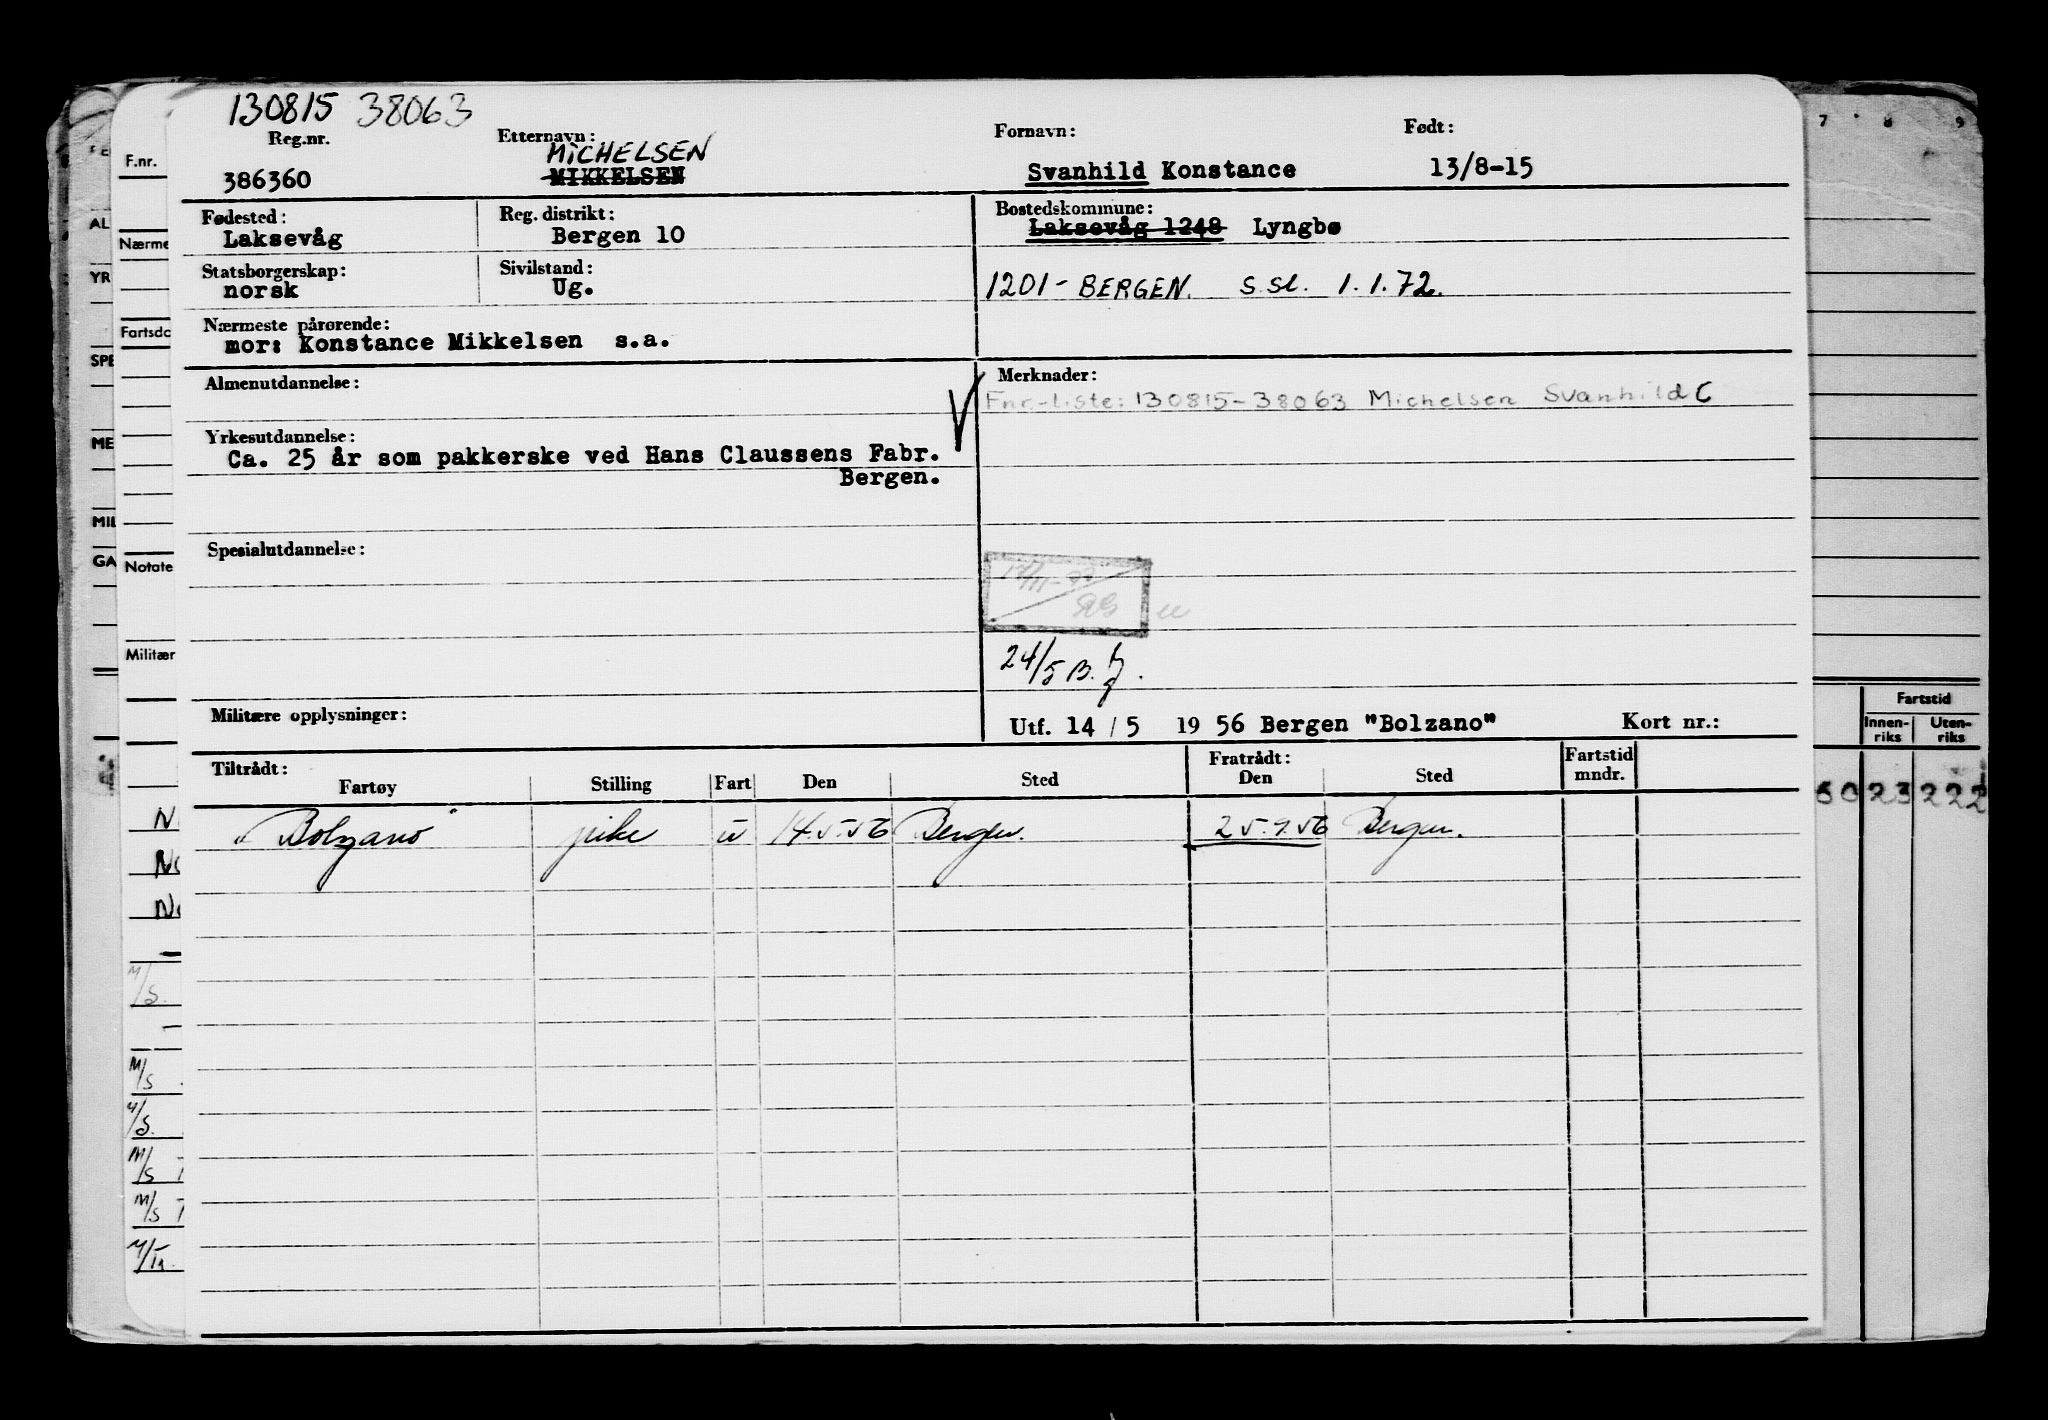 130815 38063
Reg.nr. Etternavn: Fornavn: Født:
MICHELSEN
386360 MIKKELSEN Svanhild Konstance 13/8-15
Fødested: Reg. distrikt: Bostedskommune:
Laksevåg Bergen 10 Laksevåg 1248 Lyngbø
Statsborgerskap: Sivilstand:
norsk Ug. 1201- BERGEN. S.Sl. 1.1.72.
Nærmeste pårørende:
mor: Konstance Mikkelsen s.a.
Almenutdannelse: Merknader:
Fnr.-liste: 130815-38063 Michelsen Svanhild C
Yrkesutdannelse:
Ca. 25 år som pakkerske ved Hans Claussens Fabr.
Bergen.
Spesialutdannelse:
24/5 B.
Militære opplysninger: Utf. 14 / 5 19 56 Bergen "Bolzano" Kort nr.:
Tiltrådt: Fratrådt: Fartstid
Fartøy Stilling Fart Den Sted Den Sted mndr.
"Bolzano" pike u 14.5.56 Bergen. 25.9.56 Bergen.
F.nr.
Nærme
Fartsdo
Notate
Militær
N
M/S.
M/S
M/S.
M/S
M/S
AL
YR
SPE
ME
MIL
GA
7 8 9
Fartstid
Innen-riks Uten-riks
60 23 222